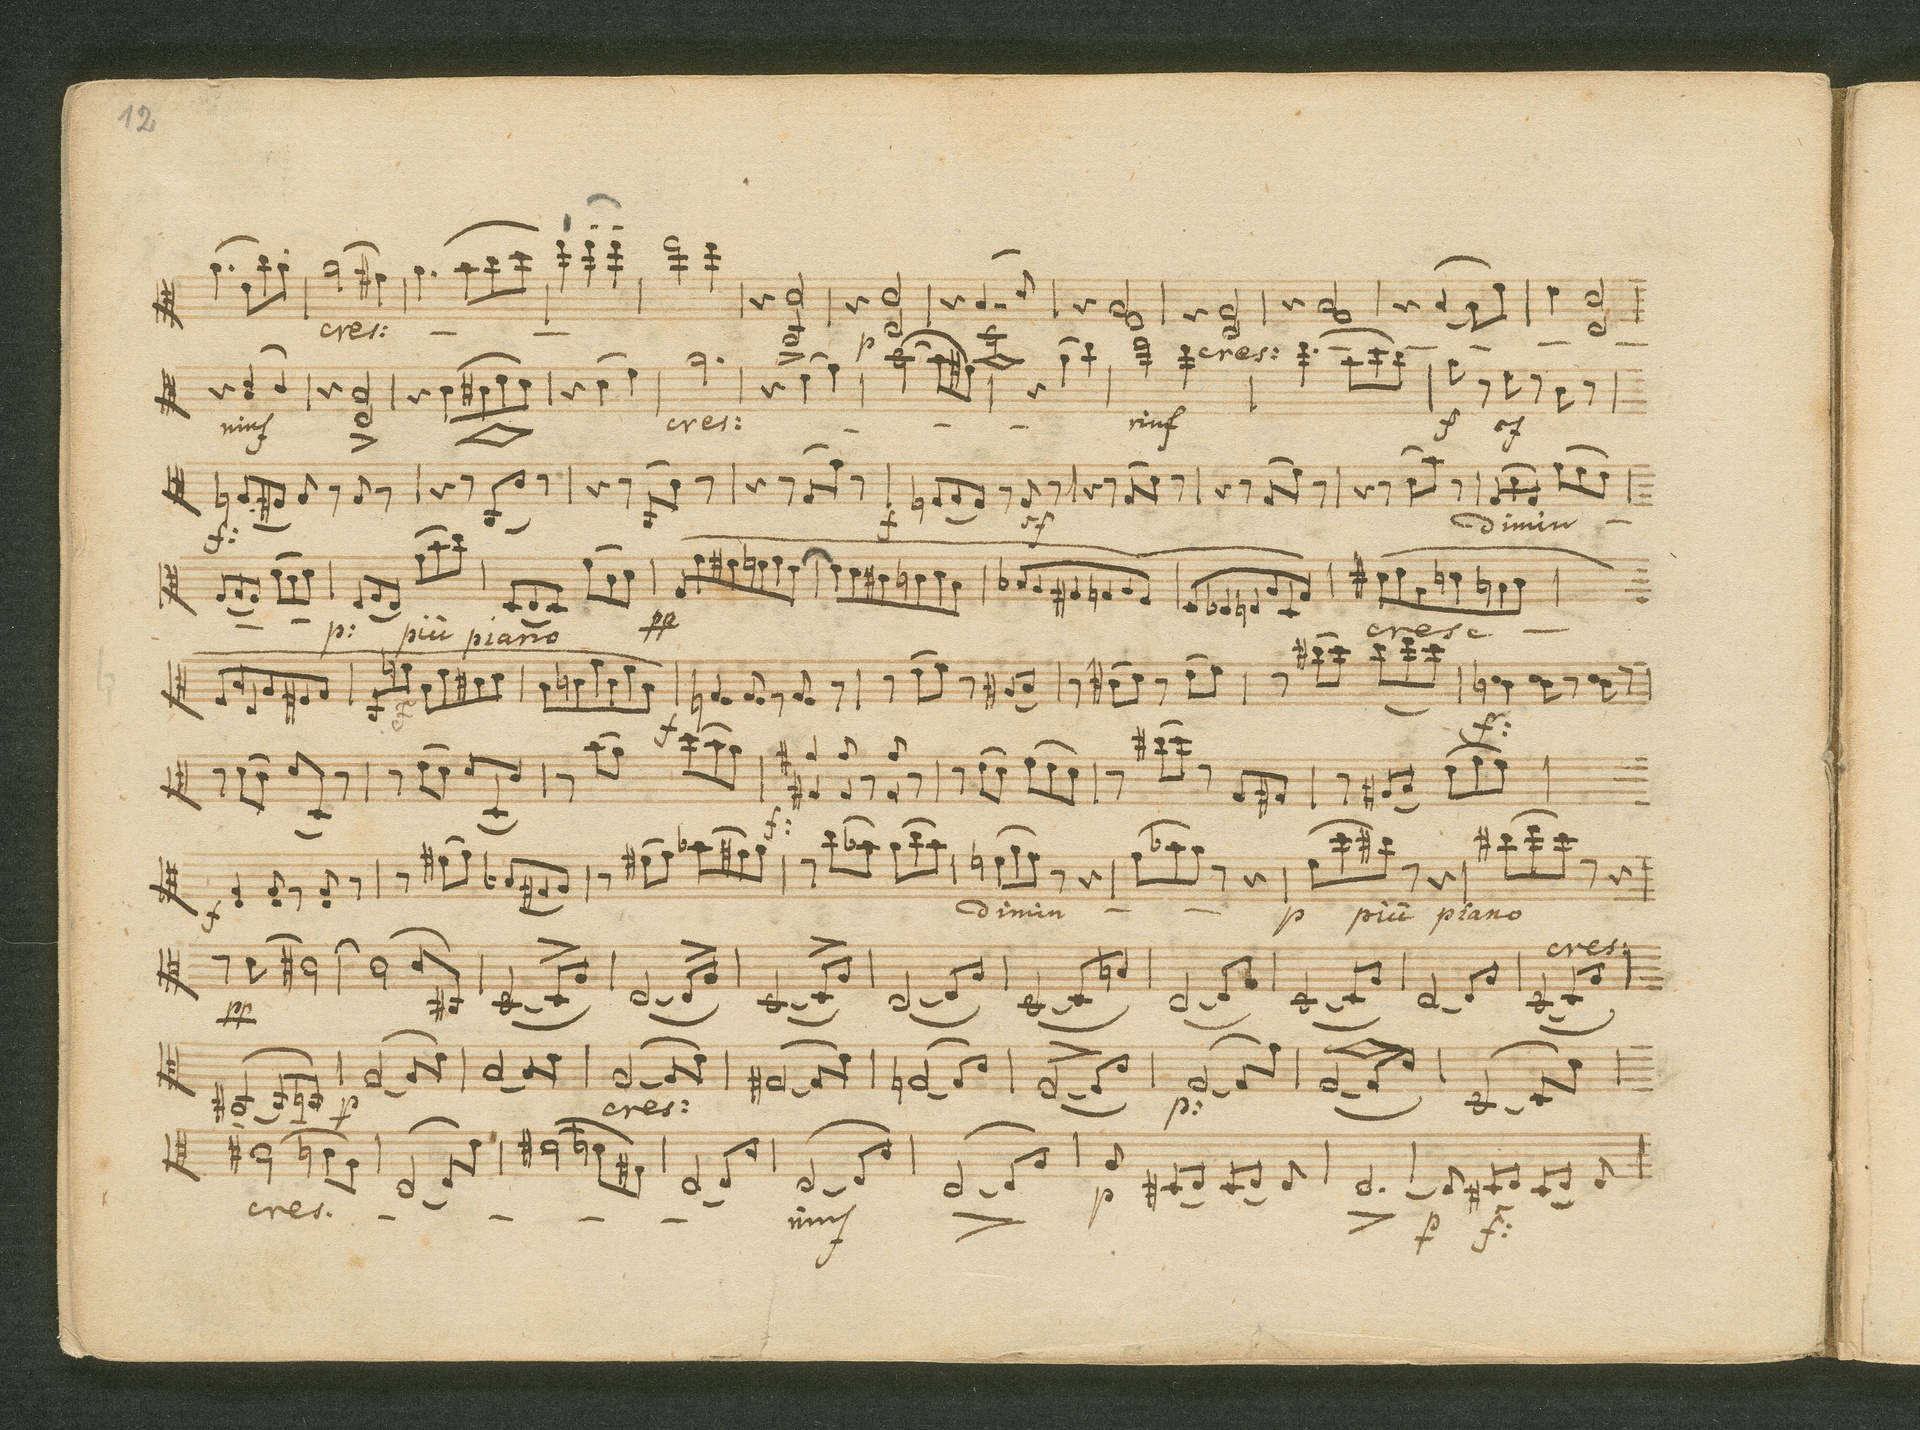 12
cres: – –
p cres: – – – – –
rinf cres: – – – rinf f sf
f: f sf Dimin –
– – p: più piano pp cresc –
f f:
f:
f Dimin – – p più piano
pp cres:
p cres: p:
cres. – – – – rinf p p f: